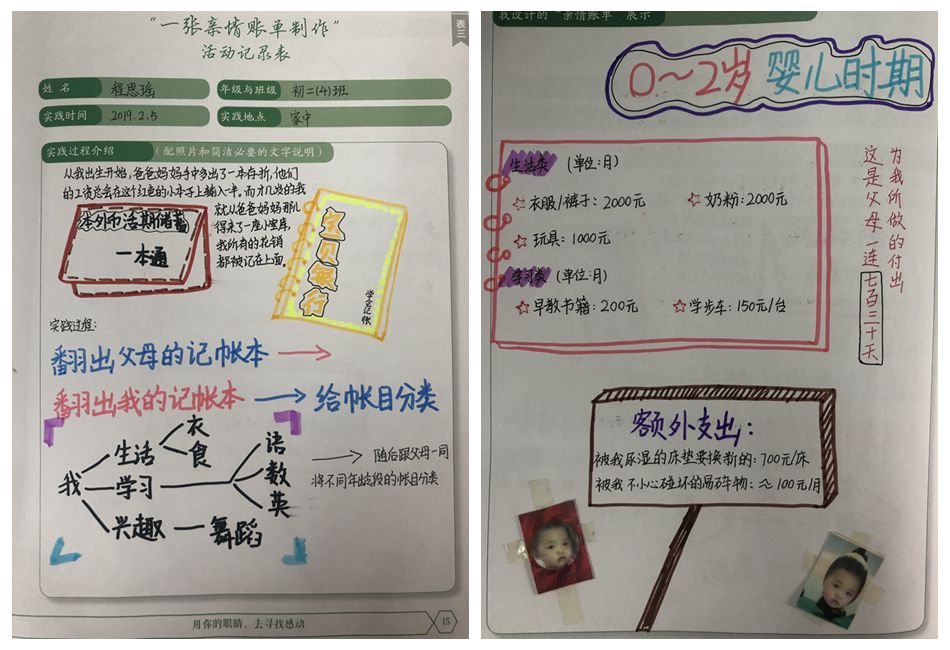 "一张亲情账单制作"
活动记录表
表三
姓 名 程思瑶
年级与班级 初二(4)班
实践时间 2019.2.5
实践地点 家中
实践过程介绍 (配照片和简洁必要的文字说明)
从我出生开始,爸爸妈妈手中多出了一本存折,他们
的工资总会在这个红色的小本子上输入一半。而才几岁的我
就从爸爸妈妈那儿
得来了一座小宝库,
我所有的花销
都被记在上面。
本外币活期储蓄
一本通
宝贝银行
学会记帐
实践过程:
翻出父母的记帐本
翻出我的记帐本
给帐目分类
我
生活
衣
食
学习
语
数
英
兴趣
舞蹈
随后跟父母一同
将不同年龄段的帐目分类
用你的眼睛,去寻找感动
15
我设计的"亲情账单"展示
0~2岁 婴儿时期
生活类 (单位:月)
衣服/裤子: 2000元
奶粉:2000元
玩具: 1000元
学习类 (单位:月)
早教书籍: 200元
学步车: 150元/台
为我所做的付出
这是父母一连七百三十天
额外支出:
被我尿湿的床垫要换新的: 700元/床
被我不小心碰坏的易碎物: ≈100元/月